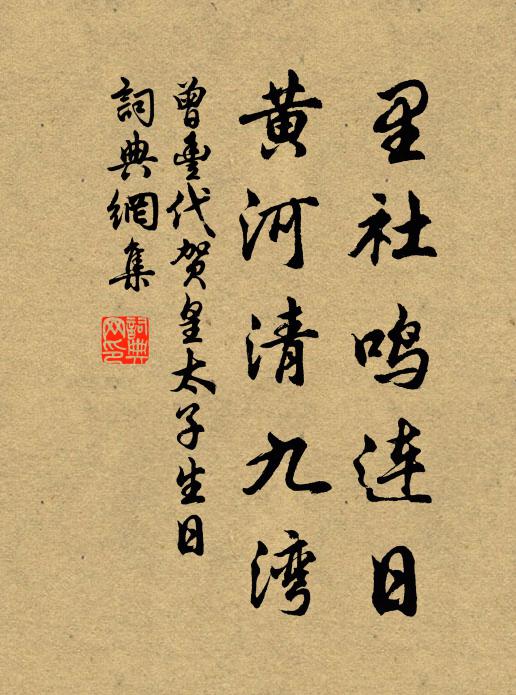 里社鸣连日
黄河清九湾
曾豊代贺皇太子生日
詞典網集
詞典网印